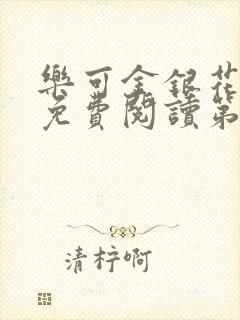 樂可金銀花
免費閱讀第
清梓啊